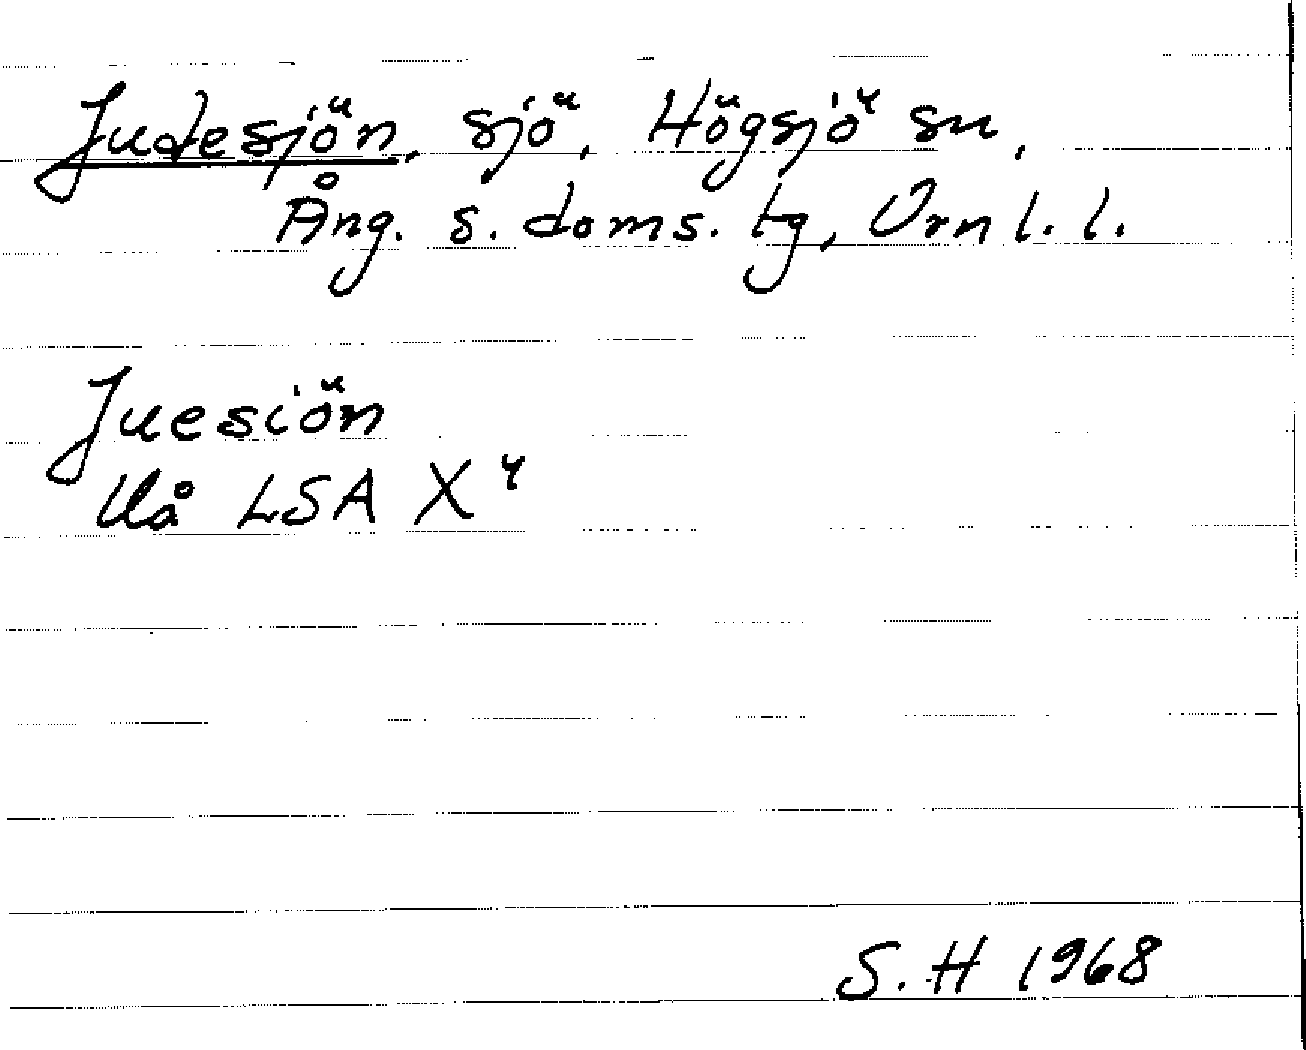 Judesjön, sjö, Högsjö sn,
Ång. s. doms. tg, Vrnl. l.
Juesiön
Uå LSA X 4
S.H 1968